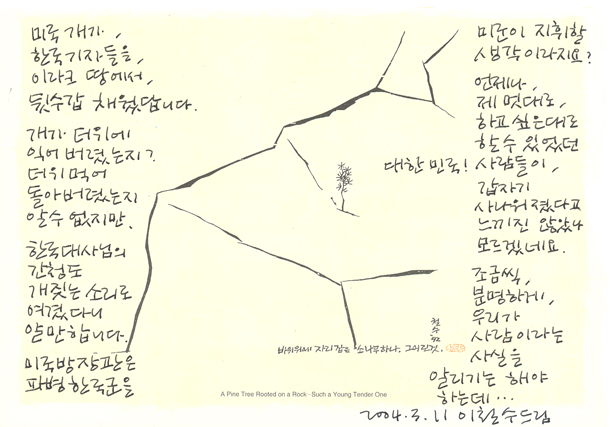 미국 개가,
한국기자들을,
이라크 땅에서,
뒷수갑 채웠답니다.
개가 더위에
익어 버렸는지?
더위 먹어
돌아버렸는지
알수 없지만.
한국대사님의
간청도
개짖는 소리로
여겼다니
알만합니다.
미국방장관은
파병한국군을
미군이 지휘할
생각이라지요?
언제나,
제 멋대로,
하고 싶은대로
할수 있었던
대한민국! 사람들이,
갑자기
사나워졌다고
느끼진 않았나
모르겠네요.
조금씩,
분명하게,
우리가
사람이라는
사실을
알리기는 해야
하는데…
2004.3.11 이철수드림
바위위에 자리잡은 소나무하나. 그 어린것.
철수 92
A Pine Tree Rooted on a Rock - Such a Young Tender One